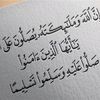 إِنَّ اللَّهَ وَمَلَٰٓئِكَتَهُۥ يُصَلُّونَ عَلَى
يَٰٓأَيُّهَا الَّذِينَ ءَامَنُوا
صَلُّوا عَلَيْهِ وَسَلِّمُوا تَسْلِيمًا